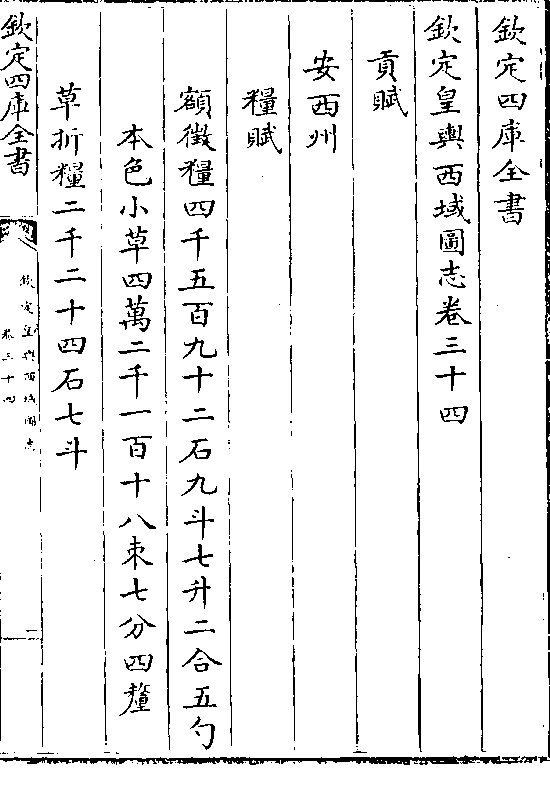 欽定四庫全書
欽定皇輿西域圖志卷三十四
貢賦
安西州
糧賦
額徵糧四千五百九十二石九斗七升二合五勺
本色小草四萬二千一百十八束七分四釐
草折糧二千二十四石七斗
欽定四庫全書
欽定皇輿西域圖志
卷三十四
一